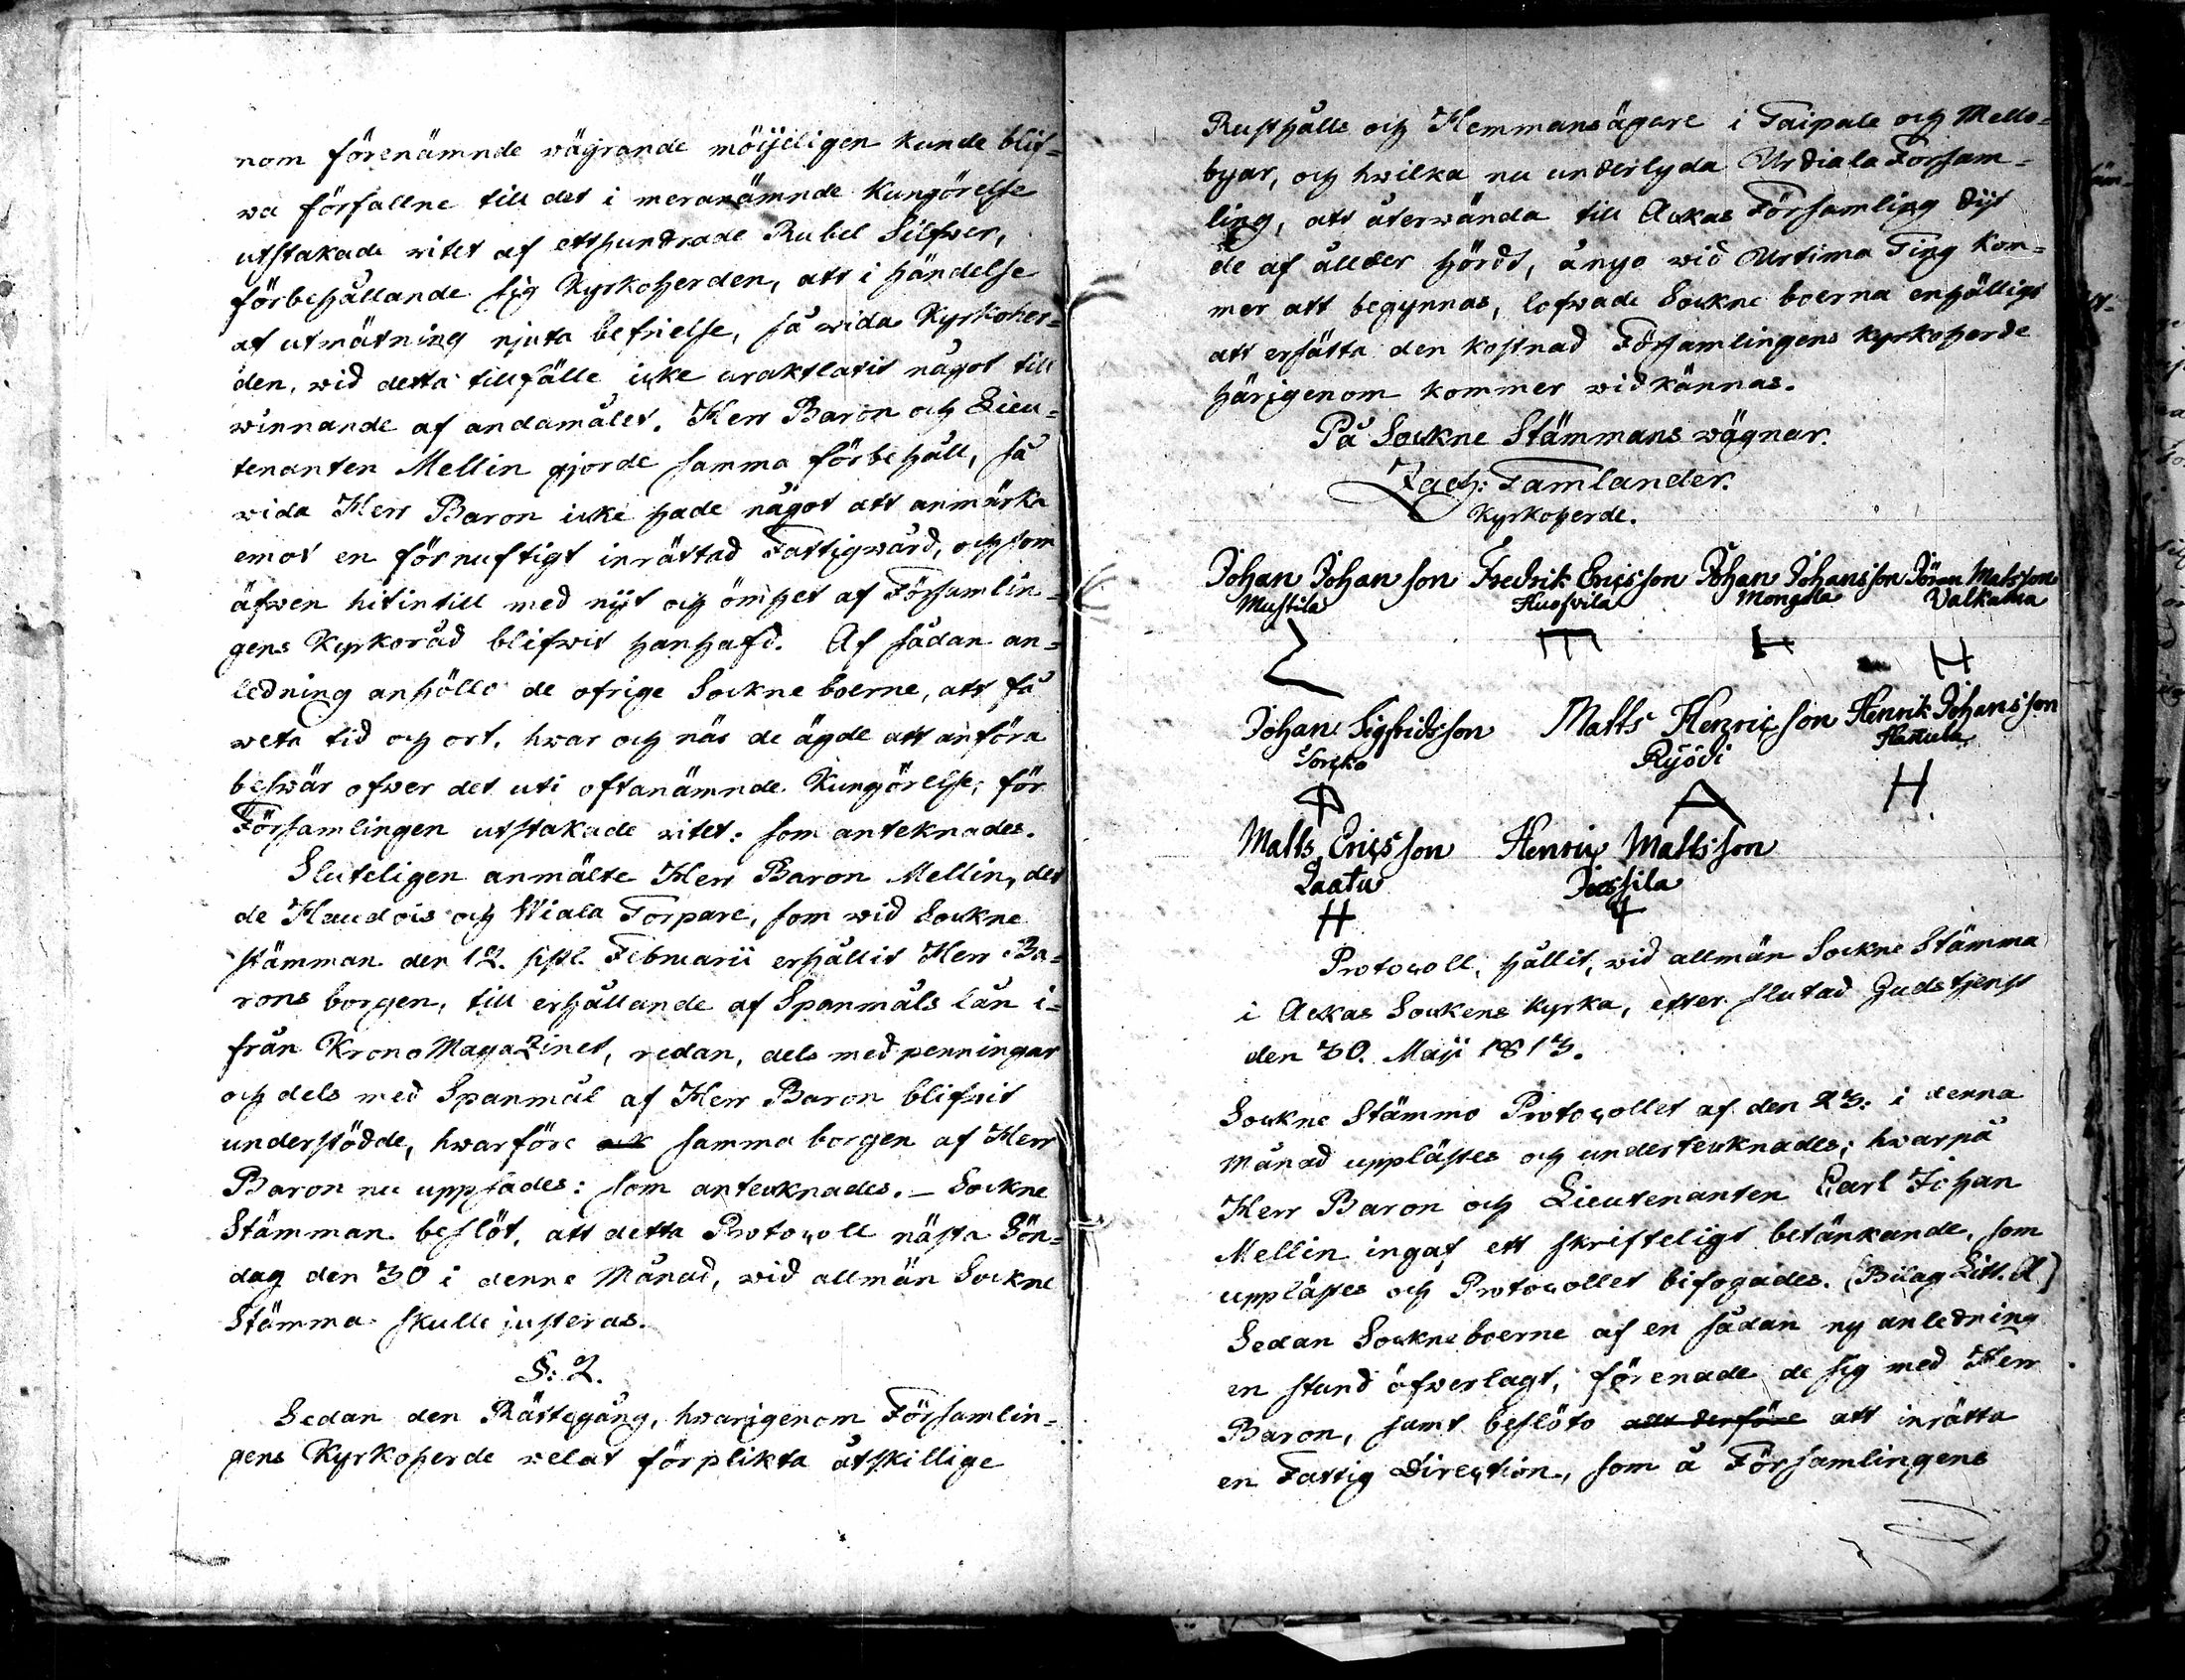 nom förenämnde wägrande möijeligen kunde blif=
wa förfallne till det i meranämnde Kungörelse
utstakade witet af etthundrade Rubel Silfwer,
förbehållande sig Kyrkoherden, att i händelse
af utmätning njuta befrielse, så wida Kyrkoher=
den, wid detta tillfälle icke uraktlatit något till
winnande af andamålet. Herr Baron och Lieu=
tenanten Mellin gjorde samma förbehåll, så
wida Herr Baron icke hade något att anmärka
emot en förnuftigt inrättad Fattigwård, och som
äfwen hitintill med nijt och ömhet af Församlin=
gens Kyrkoråd blifwit hanhafd. Af sådan an=
ledning anhöllo de ofrige Sockne boerne, att få
weta tid och ort, hwar och när de ägde att anföra
beswär ofwer det uti oftanämnde Kungörelse, för
Församlingen utstakade witet: som anteknades.
Sluteligen anmälte Herr Baron Mellin, det
de Haudois och Wiala Torpare, som wid Sockne
stämman den 12. sistl. Februarii erhållit Herr Ba=
rons borgen, till erhållande af Spanmåls lån i=
från Krono Magazinet, redan, dels med penningar
och dels med Spanmål af Herr Baron blifwit
understödde, hwarföre ock samma borgen af Herr
Baron nu uppsades: som antecknades. – Sockne
Stämman beslöt, att detta Protocoll nästa Sön=
dag den 30 i denne Månad, wid allmän Sockne
Stämma skulle justeras.
§: 2.
Sedan den Rättegång, hwarigenom Församlin=
gens Kyrkoherde welat förplikta åtskillige
Rusthålls och Hemmansägare i Taipale och Mello=
byar, och hwilka nu underlyda Urdiala Försam=
ling, att återwända till Ackas Församling dijt
de af ållder hördt, ånyo wid Urtima Ting kom=
mer att begynnas, lofwade Sockne boerna enhälligt
att ersätta den kostnad Församlingens Kyrkoherde
härigenom kommer widkännas.
På Sockne Stämmans wägnar.
Zach: Tamlander.
Kyrkoherde.
Johan Johansson Fredrik Ericsson Johan Johansson Jöran Matsson
Mustila Huofvila Mongola Valkama
Johan Sigfridsson Matts Henricsson Henrik Johansson
Ryödi
H.
Matts Ericsson Henric Mattsson
Laatu Jussila
H
Protocoll, hållit, wid allmän Sockne Stämma
i Ackas Sockens kyrka, efter slutad Gudstjenst
den 30. Maji 1813.
Sockne Stämmo Protocollet af den 23. i denna
Månad upplästes och undertecknades; hwarpå
Herr Baron och Lieutenanten Carl Johan
Mellin ingaf ett skrifteligt betänkande, som
upplästes och Protocollet bifogades. (Bilag Litt. A)
Sedan Sockneboerne af en sådan ny anledning
en stund öfwerlagt, förenade de sig med Herr
Baron, samt beslöto allt derföre att inrätta
en Fattig Direction, som å Församlingens